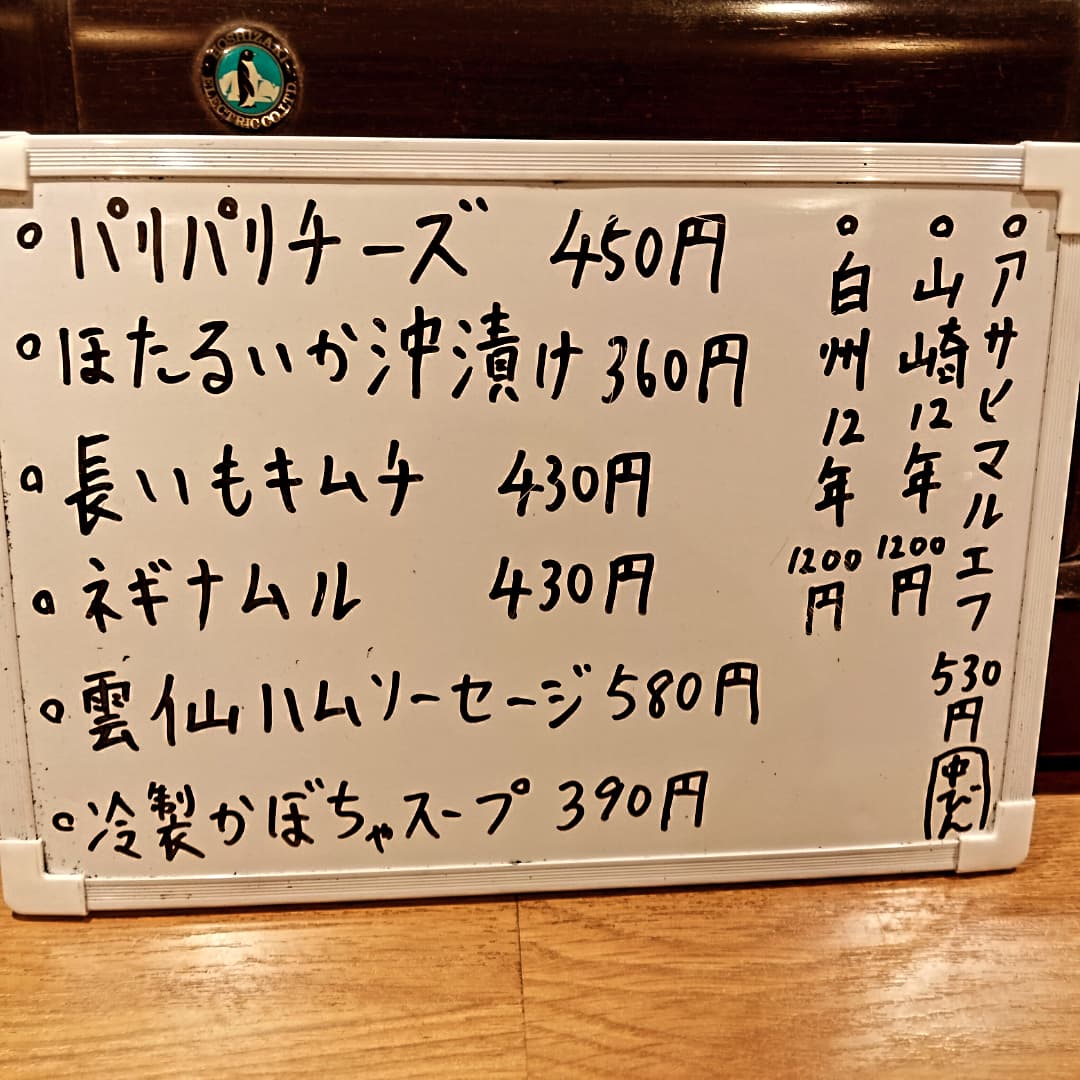 HOSHIZAKI ELECTRIC CO.LTD.
パリパリチーズ 450円
ほたるいか沖漬け 360円
長いもキムチ 430円
ネギナムル 430円
雲仙ハムソーセージ 580円
冷製かぼちゃスープ 390円
アサヒマルエフ 530円 中びん
山崎12年 1200円
白州12年 1200円